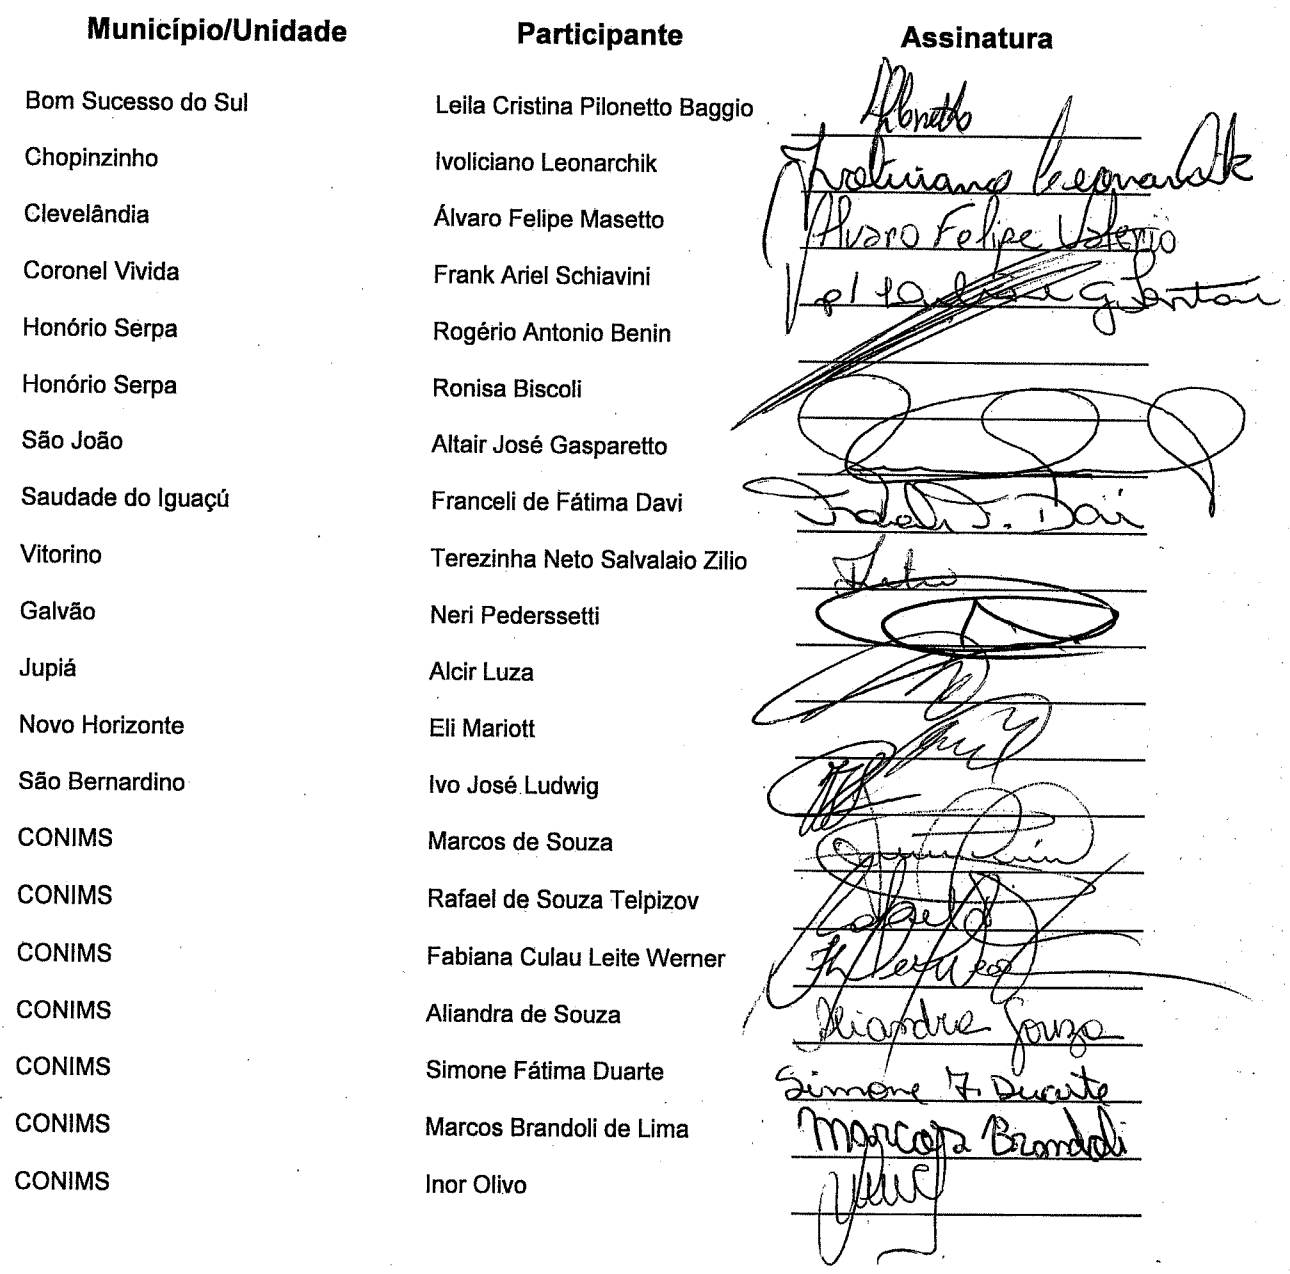 Município/Unidade Participante Assinatura
Bom Sucesso do Sul Leila Cristina Pilonetto Baggio
Chopinzinho Ivoliciano Leonarchik Ivoliciano Leonarchik
Clevelândia Álvaro Felipe Masetto Alvaro Felipe Valerio
Coronel Vivida Frank Ariel Schiavini p/
Honório Serpa Rogério Antonio Benin
Honório Serpa Ronisa Biscoli
São João Altair José Gasparetto
Saudade do Iguaçú Franceli de Fátima Davi
Vitorino Terezinha Neto Salvalaio Zilio
Galvão Neri Pederssetti
Jupiá Alcir Luza
Novo Horizonte Eli Mariott
São Bernardino Ivo José Ludwig
CONIMS Marcos de Souza
CONIMS Rafael de Souza Telpizov
CONIMS Fabiana Culau Leite Werner
CONIMS Aliandra de Souza Aliandra Souza
CONIMS Simone Fátima Duarte Simone F. Duarte
CONIMS Marcos Brandoli de Lima Marcos Brandoli
CONIMS Inor Olivo